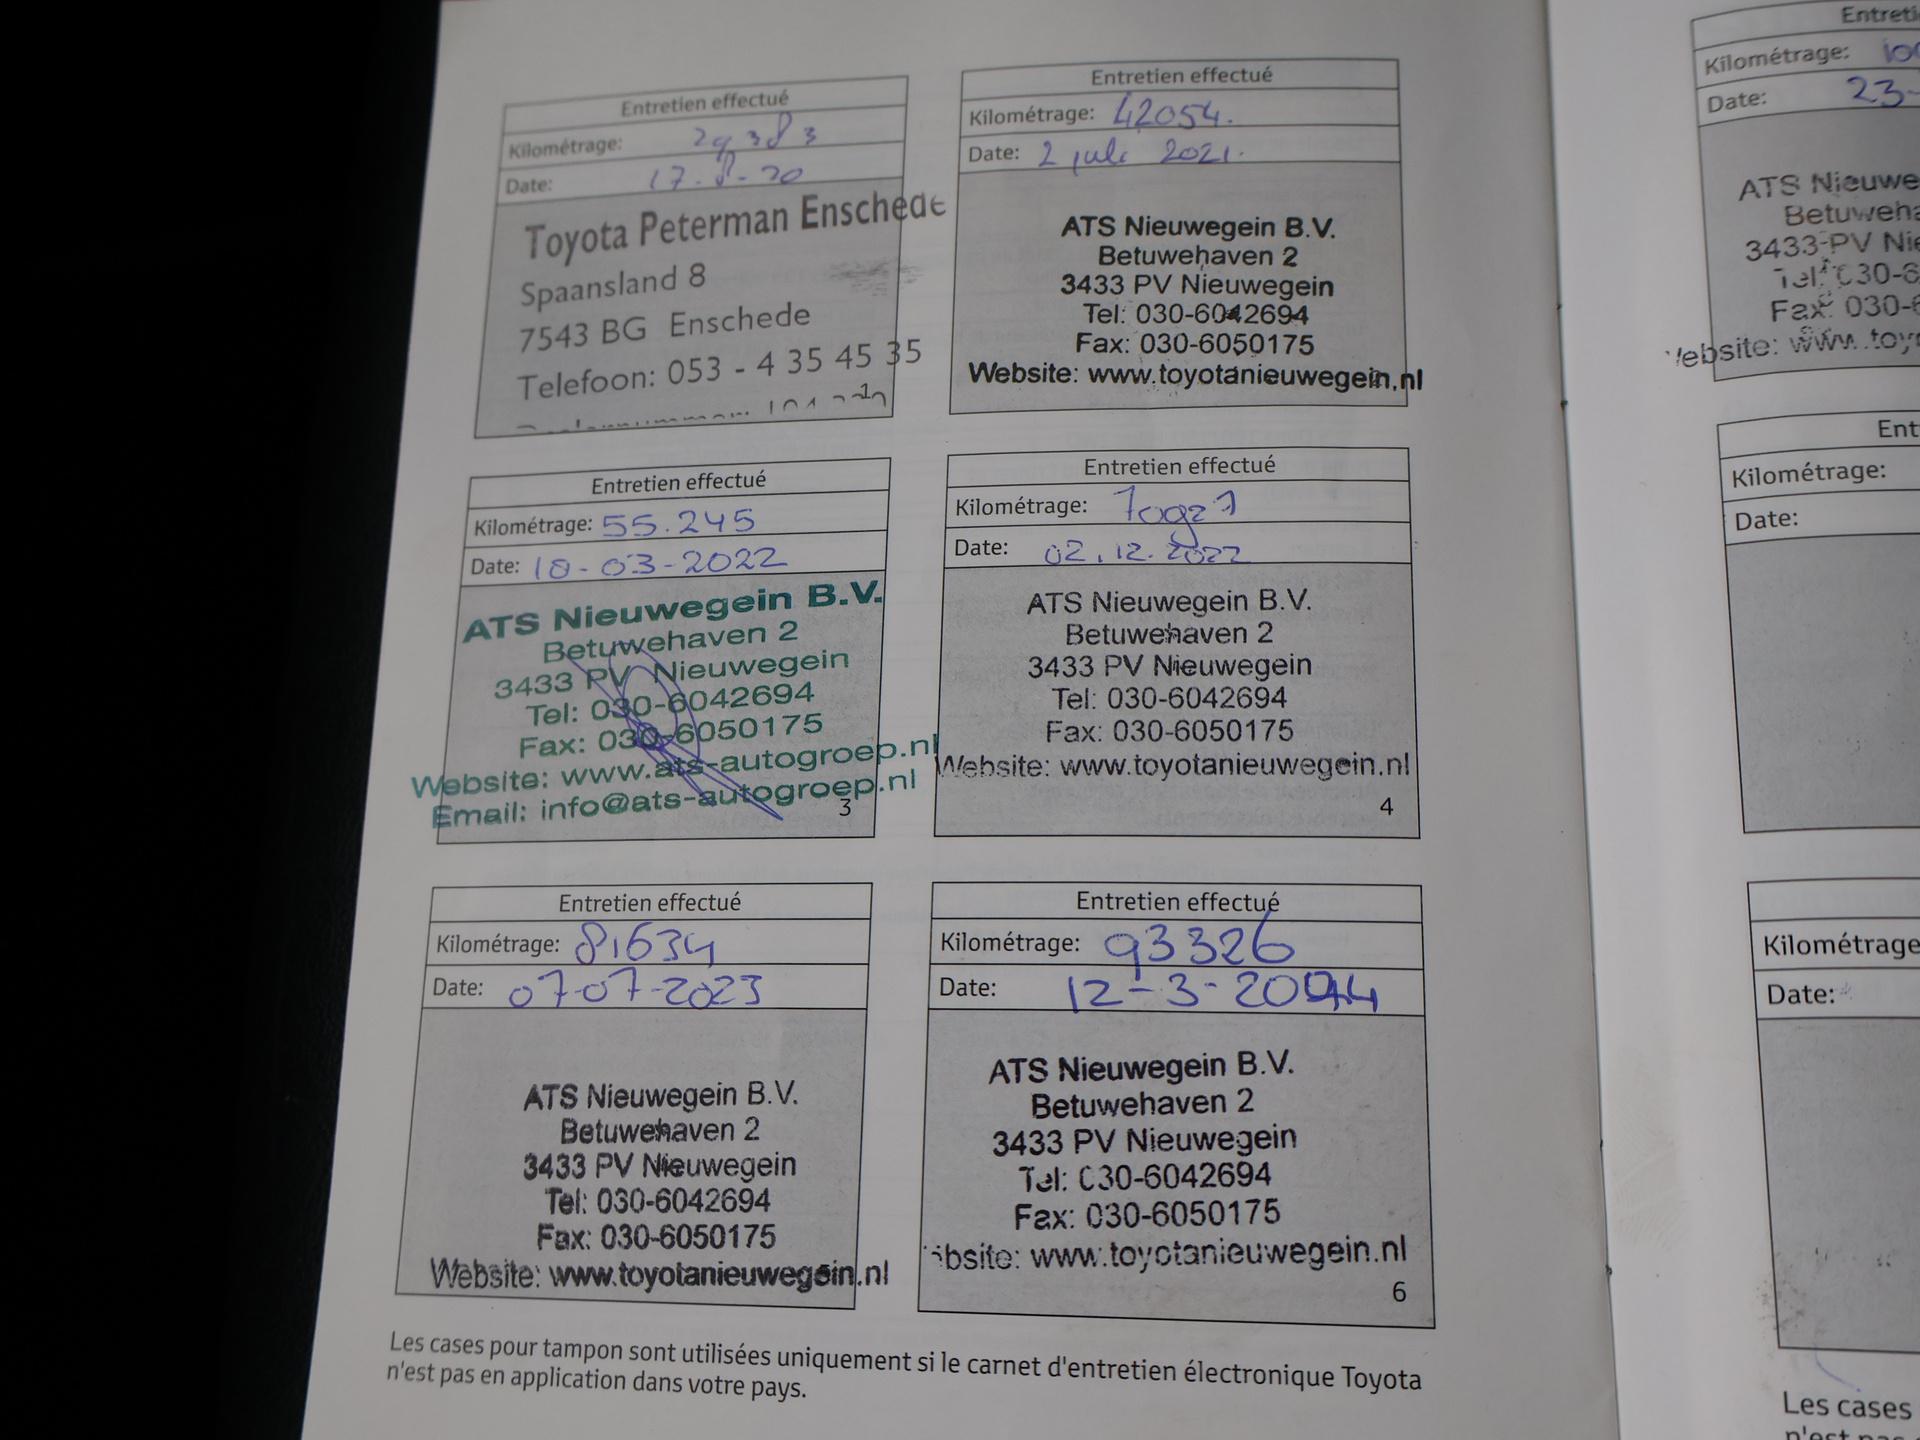 Entretien effectué
Kilométrage: 29383
Date: 17-8-20
Toyota Peterman Enschede
Spaansland 8
7543 BG Enschede
Telefoon: 053 - 4 35 45 35
Entretien effectué
Kilométrage: 42054.
Date: 2 juli 2021.
ATS Nieuwegein B.V.
Betuwehaven 2
3433 PV Nieuwegein
Tel: 030-6042694
Fax: 030-6050175
Website: www.toyotanieuwegein.nl
Entretien effectué
Kilométrage: 55.245
Date: 18-03-2022
ATS Nieuwegein B.V.
Betuwehaven 2
3433 PV Nieuwegein
Tel: 030-6042694
Fax: 030-6050175
Website: www.ats-autogroep.nl
Email: info@ats-autogroep.nl
3
Entretien effectué
Kilométrage:
Date: 02.12.2022
ATS Nieuwegein B.V.
Betuwehaven 2
3433 PV Nieuwegein
Tel: 030-6042694
Fax: 030-6050175
Website: www.toyotanieuwegein.nl
4
Entretien effectué
Kilométrage: 81634
Date: 07-07-2023
ATS Nieuwegein B.V.
Betuwehaven 2
3433 PV Nieuwegein
Tel: 030-6042694
Fax: 030-6050175
Website: www.toyotanieuwegein.nl
Entretien effectué
Kilométrage: 93326
Date: 12-3-2024
ATS Nieuwegein B.V.
Betuwehaven 2
3433 PV Nieuwegein
Tel: 030-6042694
Fax: 030-6050175
bsite: www.toyotanieuwegein.nl
6
Les cases pour tampon sont utilisées uniquement si le carnet d'entretien électronique Toyota
n'est pas en application dans votre pays.
Entreti
Kilométrage:
Date: 23-
ATS Nieuwe
Betuweha
3433 PV Nie
Tel: 030-6
Fax: 030-6
ebsite: www.toyo
Ent
Kilométrage:
Date:
Kilométrage
Date:
Les cases
n'est pas